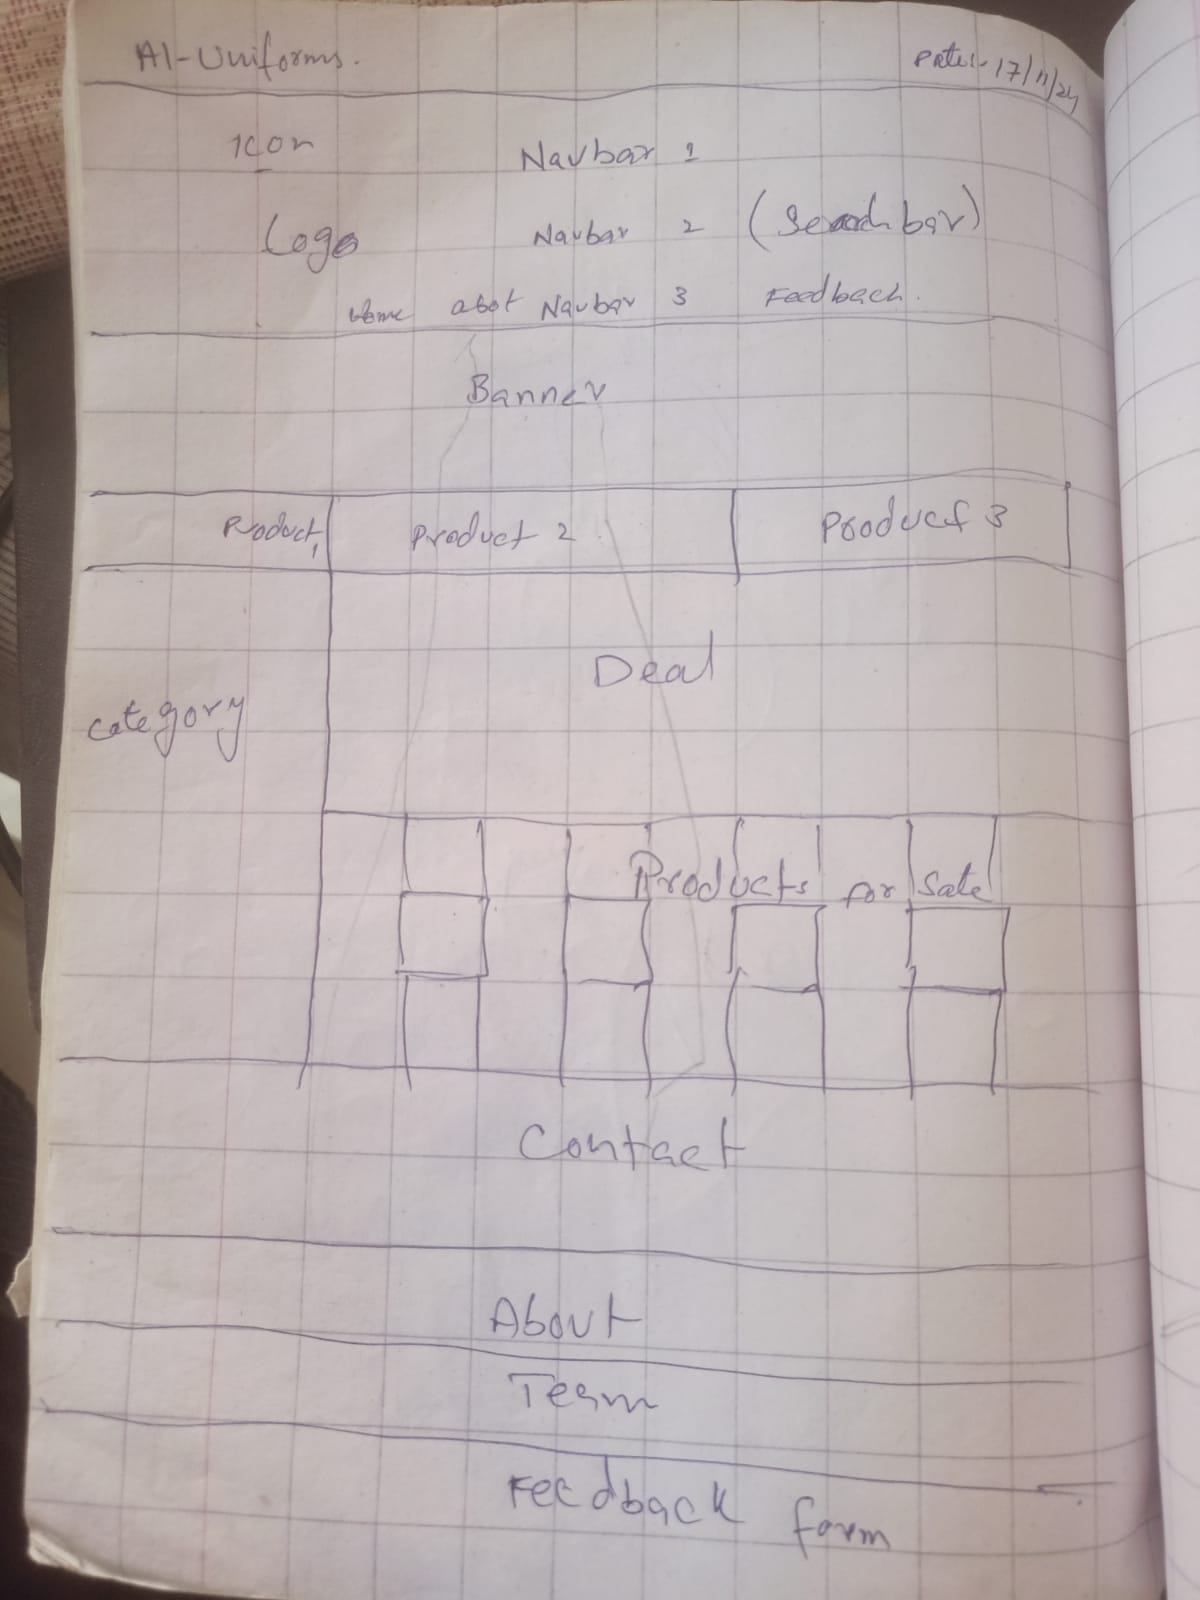 Al-Uniforms.
Date:- 17/11/24
Icon
Navbar 1
Logo
Navbar 2 (Search bar)
Home abot Navbar 3 Feedback.
Banner
Product 1
Product 2
Product 3
Deal
category
Products for Sale
Contact
About
Team
Feedback form